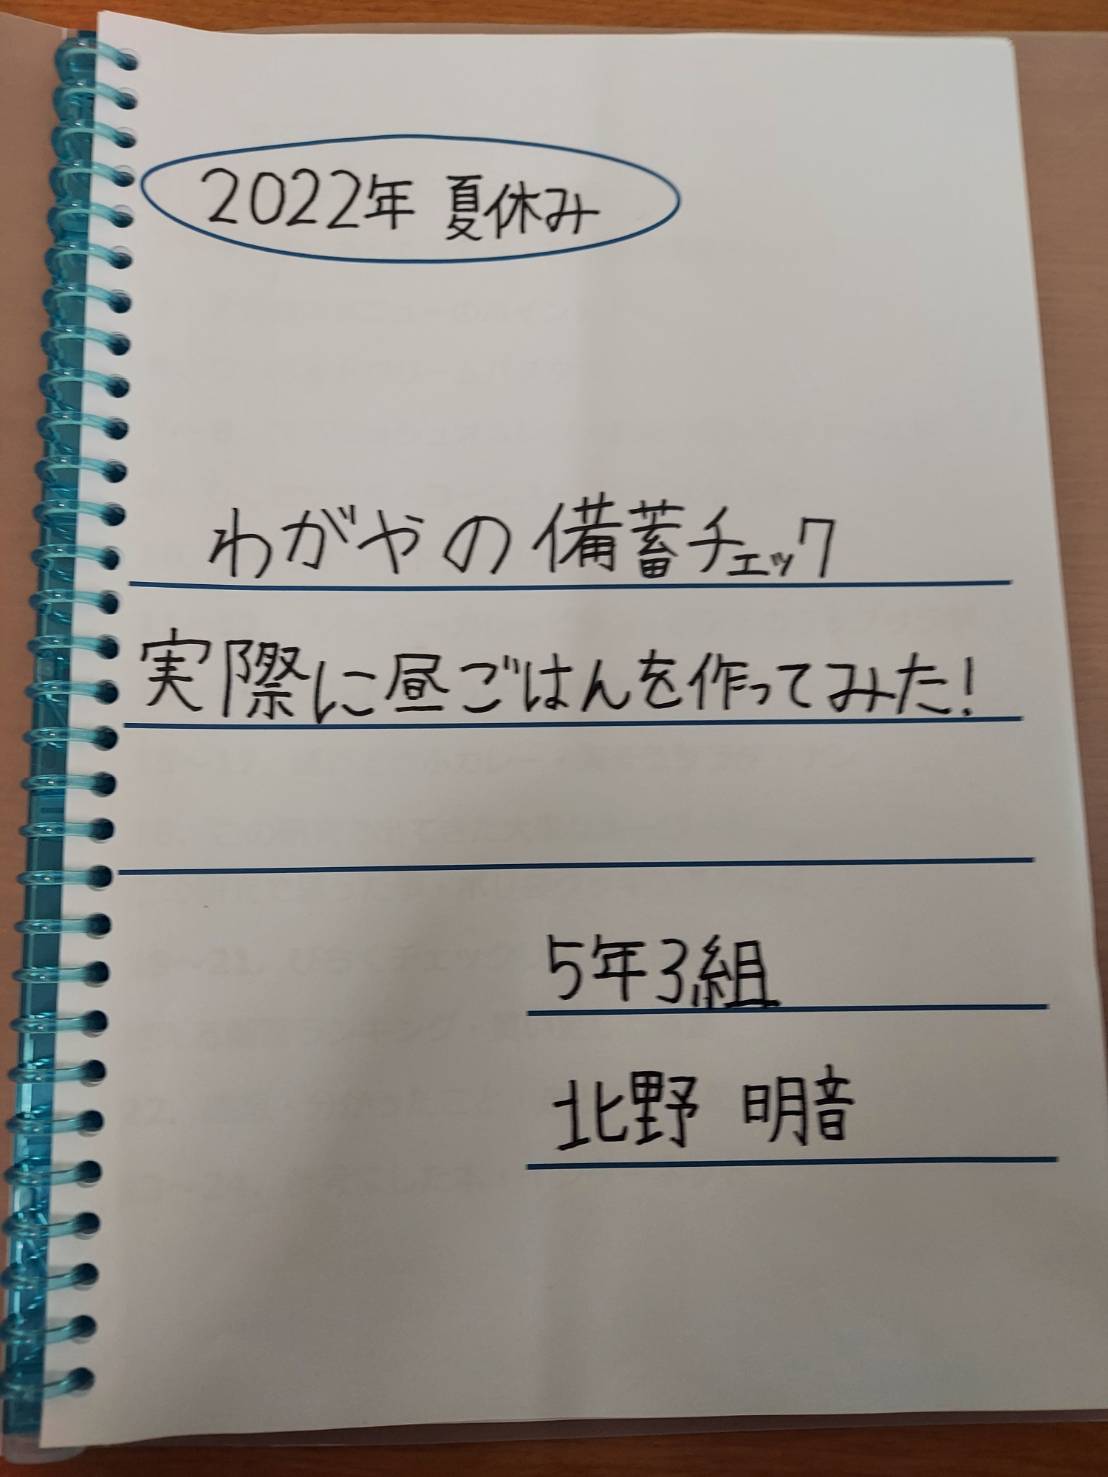 2022年 夏休み
わがやの備蓄チェック
実際に昼ごはんを作ってみた!
5年3組
北野 明音